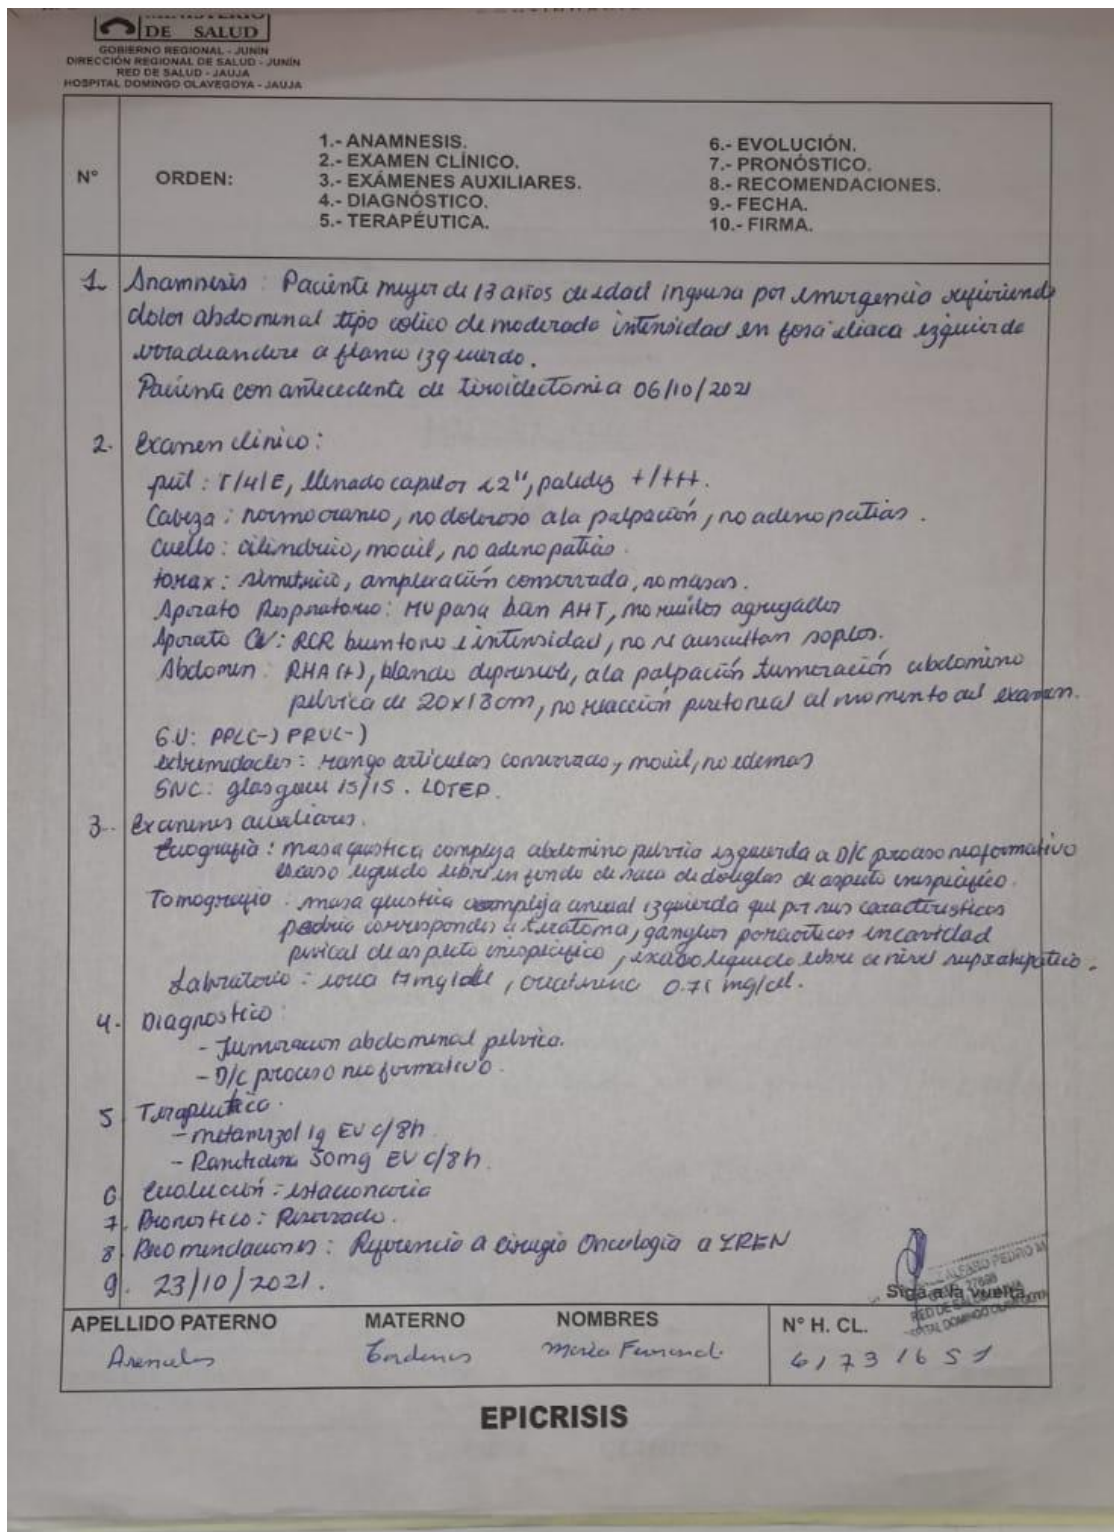 MINISTERIO
DE SALUD
GOBIERNO REGIONAL - JUNIN
DIRECCIÓN REGIONAL DE SALUD - JUNIN
RED DE SALUD - JAUJA
HOSPITAL DOMINGO OLAVEGOYA - JAUJA
N° ORDEN:
1.- ANAMNESIS.
2.- EXAMEN CLÍNICO.
3.- EXÁMENES AUXILIARES.
4.- DIAGNÓSTICO.
5.- TERAPÉUTICA.
6.- EVOLUCIÓN.
7.- PRONÓSTICO.
8.- RECOMENDACIONES.
9.- FECHA.
10.- FIRMA.
1. Anamnesis : Paciente mujer de 13 años de edad ingresa por emergencia refiriendo
dolor abdominal tipo colico de moderado intensidad en fosa iliaca izquierda
irradiandose a flanco izquierdo.
Paciente con antecedente de tiroidectomia 06/10/2021
2. Examen clinico :
piel : T/H/E, llenado capilar <2", palidez +/+++.
Cabeza : normocraneo, no doloroso a la palpación, no adenopatias.
Cuello : cilindrico, movil, no adenopatias.
torax : simetrico, amplexación conservada, no masas.
Aparato Respiratorio : MV pasa bien AHT, no ruidos agregados
Aparato CV : RCR buen tono e intensidad, no se auscultan soplos.
Abdomen : RHA (+), blando depresible, a la palpación tumoración abdomino
pelvica de 20x13cm, no reacción peritoneal al momento del examen.
G.U : PPL(-) PRU(-)
extremidades : rango articular conservado, movil, no edemas
SNC : glasgow 15/15. LOTEP.
3. Examenes auxiliares.
Ecografia : masa quistica compleja abdomino pelvica izquierda a D/C proceso neoformativo
escaso liquido libre en fondo de saco de douglas de aspecto inespecifico.
Tomografia : masa quistica compleja anexial izquierda que por sus caracteristicas
podria corresponder a teratoma, ganglios paraorticos en cavidad
pelvica de aspecto inespecifico, escaso liquido libre a nivel suprahepatico.
Laboratorio : urea 17mg/dl, creatinina mg/dl.
4. Diagnostico :
- Tumoracion abdominal pelvica.
- D/C proceso neoformativo.
5. Terapeutica.
- metamizol 1g EV c/8h.
- Ranitidina 50mg EV c/8h.
6 Evolución : estacionaria
7. Pronostico : Reservado.
8. Recomendaciones : Referencia a cirugia Oncologia a IREN
9. 23/10/2021.
ALFARO PEDRO M
Siga a la vuelta
RED DE SALUD JAUJA
HOSPITAL DOMINGO OLAVEGOYA
APELLIDO PATERNO MATERNO NOMBRES N° H. CL.
Arenales Cardenas Maria Fernand. 61731651
EPICRISIS